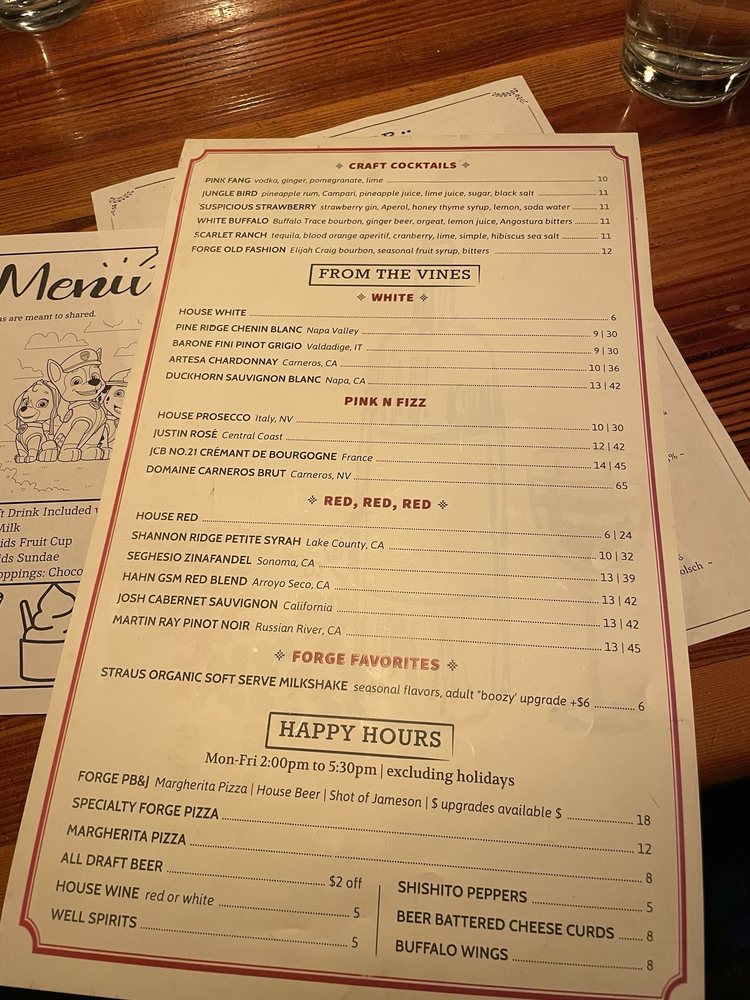 CRAFT COCKTAILS
PINK FANG vodka, ginger, pomegranate, lime 10
JUNGLE BIRD pineapple rum, Campari, pineapple juice, lime juice, sugar, black salt 11
'SUSPICIOUS STRAWBERRY strawberry gin, Aperol, honey thyme syrup, lemon, soda water 11
WHITE BUFFALO Buffalo Trace bourbon, ginger beer, orgeat, lemon juice, Angostura bitters 11
SCARLET RANCH tequila, blood orange aperitif, cranberry, lime, simple, hibiscus sea salt 11
FORGE OLD FASHION Elijah Craig bourbon, seasonal fruit syrup, bitters 12
FROM THE VINES
WHITE
HOUSE WHITE 6
PINE RIDGE CHENIN BLANC Napa Valley 9 | 30
BARONE FINI PINOT GRIGIO Valdadige, IT 9 | 30
ARTESA CHARDONNAY Carneros, CA 10 | 36
DUCKHORN SAUVIGNON BLANC Napa, CA 13 | 42
PINK N FIZZ
HOUSE PROSECCO Italy, NV 10 | 30
JUSTIN ROSÉ Central Coast 12 | 42
JCB NO.21 CRÉMANT DE BOURGOGNE France 14 | 45
DOMAINE CARNEROS BRUT Carneros, NV 65
RED, RED, RED
HOUSE RED 6 | 24
SHANNON RIDGE PETITE SYRAH Lake County, CA 10 | 32
SEGHESIO ZINAFANDEL Sonoma, CA 13 | 39
HAHN GSM RED BLEND Arroyo Seco, CA 13 | 42
JOSH CABERNET SAUVIGNON California 13 | 42
MARTIN RAY PINOT NOIR Russian River, CA 13 | 45
FORGE FAVORITES
STRAUS ORGANIC SOFT SERVE MILKSHAKE seasonal flavors, adult "boozy' upgrade +$6 6
HAPPY HOURS
Mon-Fri 2:00pm to 5:30pm | excluding holidays
FORGE PB&J Margherita Pizza | House Beer | Shot of Jameson | $ upgrades available $ 18
SPECIALTY FORGE PIZZA 12
MARGHERITA PIZZA 8
ALL DRAFT BEER $2 off
HOUSE WINE red or white 5
WELL SPIRITS 5
SHISHITO PEPPERS 5
BEER BATTERED CHEESE CURDS 8
BUFFALO WINGS 8
Menu
are meant to shared.
Drink Included
Milk
Fruit Cup
Sundae